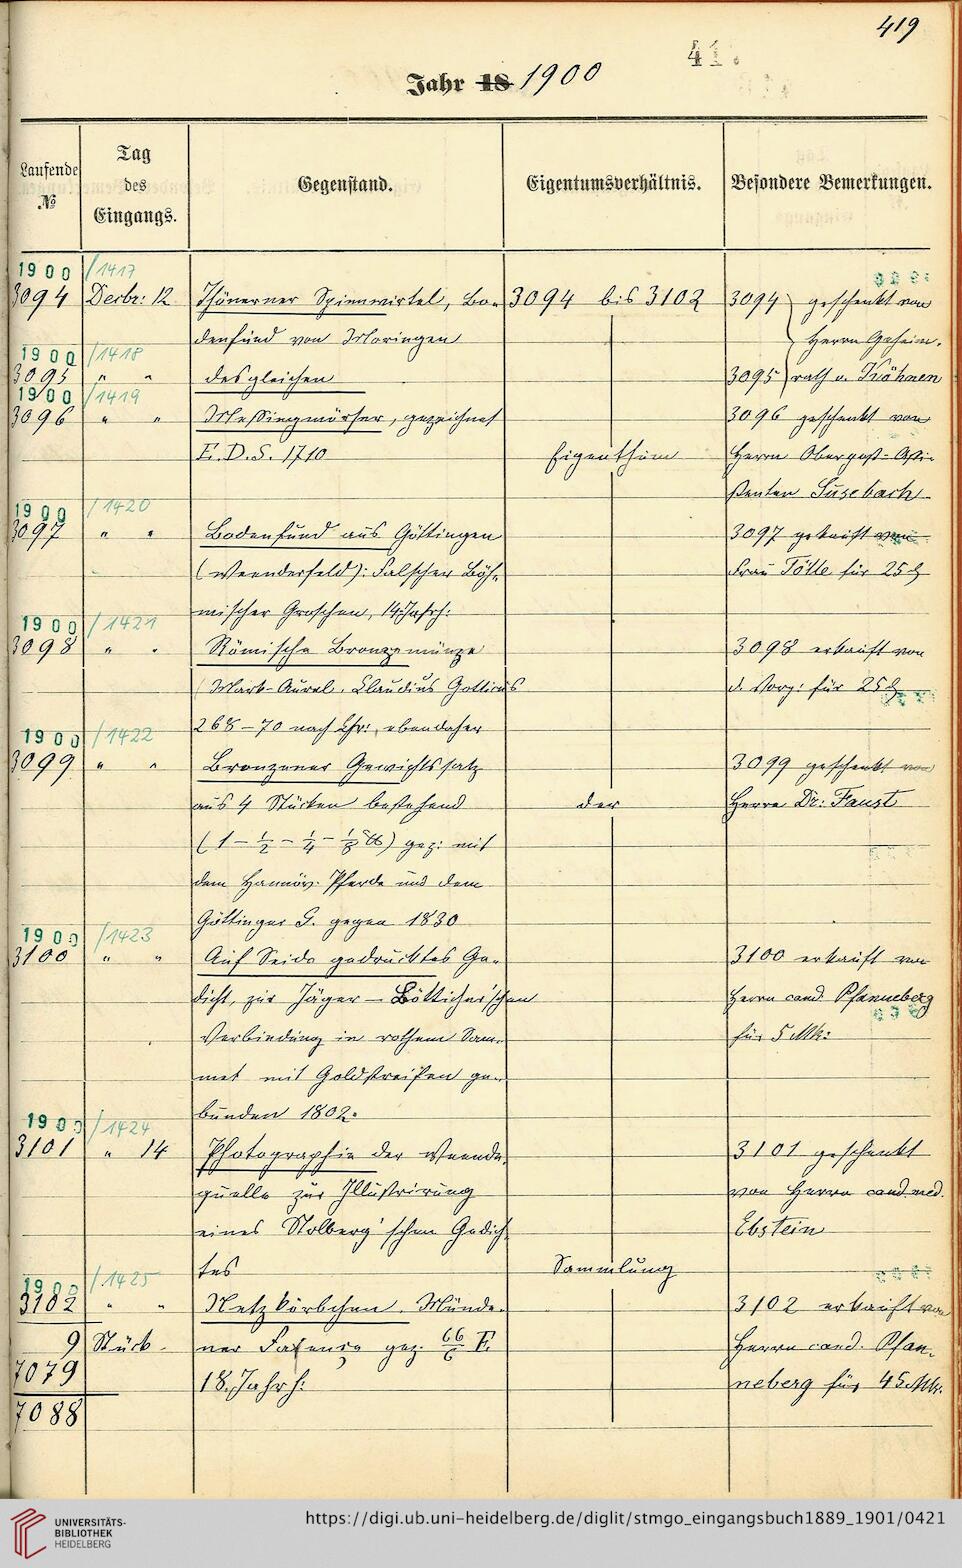 419
41
Jahr 18 1900
Laufende
№
Tag
des
Eingangs.
Gegenstand.
Eigentumsverhältnis.
Besondere Bemerkungen.
1900 /1417
3094 Decbr: 12 Thönerner Spinnwirtel, Bo- 3094 bis 3102 3094 geschenkt von
denfund von Moringen Herrn Geheim-
1900 /1418
3095 " " desgleichen 3095 rath v.
1900 /1419
3096 " " Messingmörser, gezeichnet 3096 geschenkt von
E. D. S. 1710 Eigenthum Herrn Oberpost-Assi-
stenten Susebach
1900 /1420
3097 " " Bodenfund aus Göttingen 3097 gekauft von
(Weenderfeld): Falscher Böh- Frau Tölle für 25 ₰
mischer Groschen, 14. Jahrh:
1900 /1421
3098 " " Römische Bronzemünze 3098 erkauft von
(Mark-Aurel. Claudius Gotticus d. Vorg: für 25 ₰
268-70 nach Chr:, ebendaher
1900 /1422
3099 " " Bronzener Gewichtssatz 3099 geschenkt von
aus 4 Stücken bestehend der Herrn Dr: Faust
(1 - 1/2 - 1/4 - 1/8 ℔) gez: mit
dem Hannöv. Pferde und dem
Göttinger G. gegen 1830
1900 /1423
3100 " " Auf Seide gedrucktes Ge- 3100 erkauft von
dicht, zur Jäger-Bötticher'schen Herrn cand. Pfanneberg
Verbindung in rothem Sam- für 5 Mk:
met mit Goldstreifen ge-
bunden 1802.
1900 /1424
3101 " 14 Photographie der Weende- 3101 geschenkt
quelle zur Illustrirung von Herrn cand. med.
eines Stolberg'schen Gedich- Ebstein
tes Sammlung
1900 /1425
3102 " " Netzkörbchen. Münde- 3102 erkauft von
9 Stück. ner Fayence gez. 66/6 F. Herrn cand. Pfan-
7079 18. Jahrh: neberg für 45 Mk.
7088
UNIVERSITÄTS-
BIBLIOTHEK
HEIDELBERG
https://digi.ub.uni-heidelberg.de/diglit/stmgo_eingangsbuch1889_1901/0421